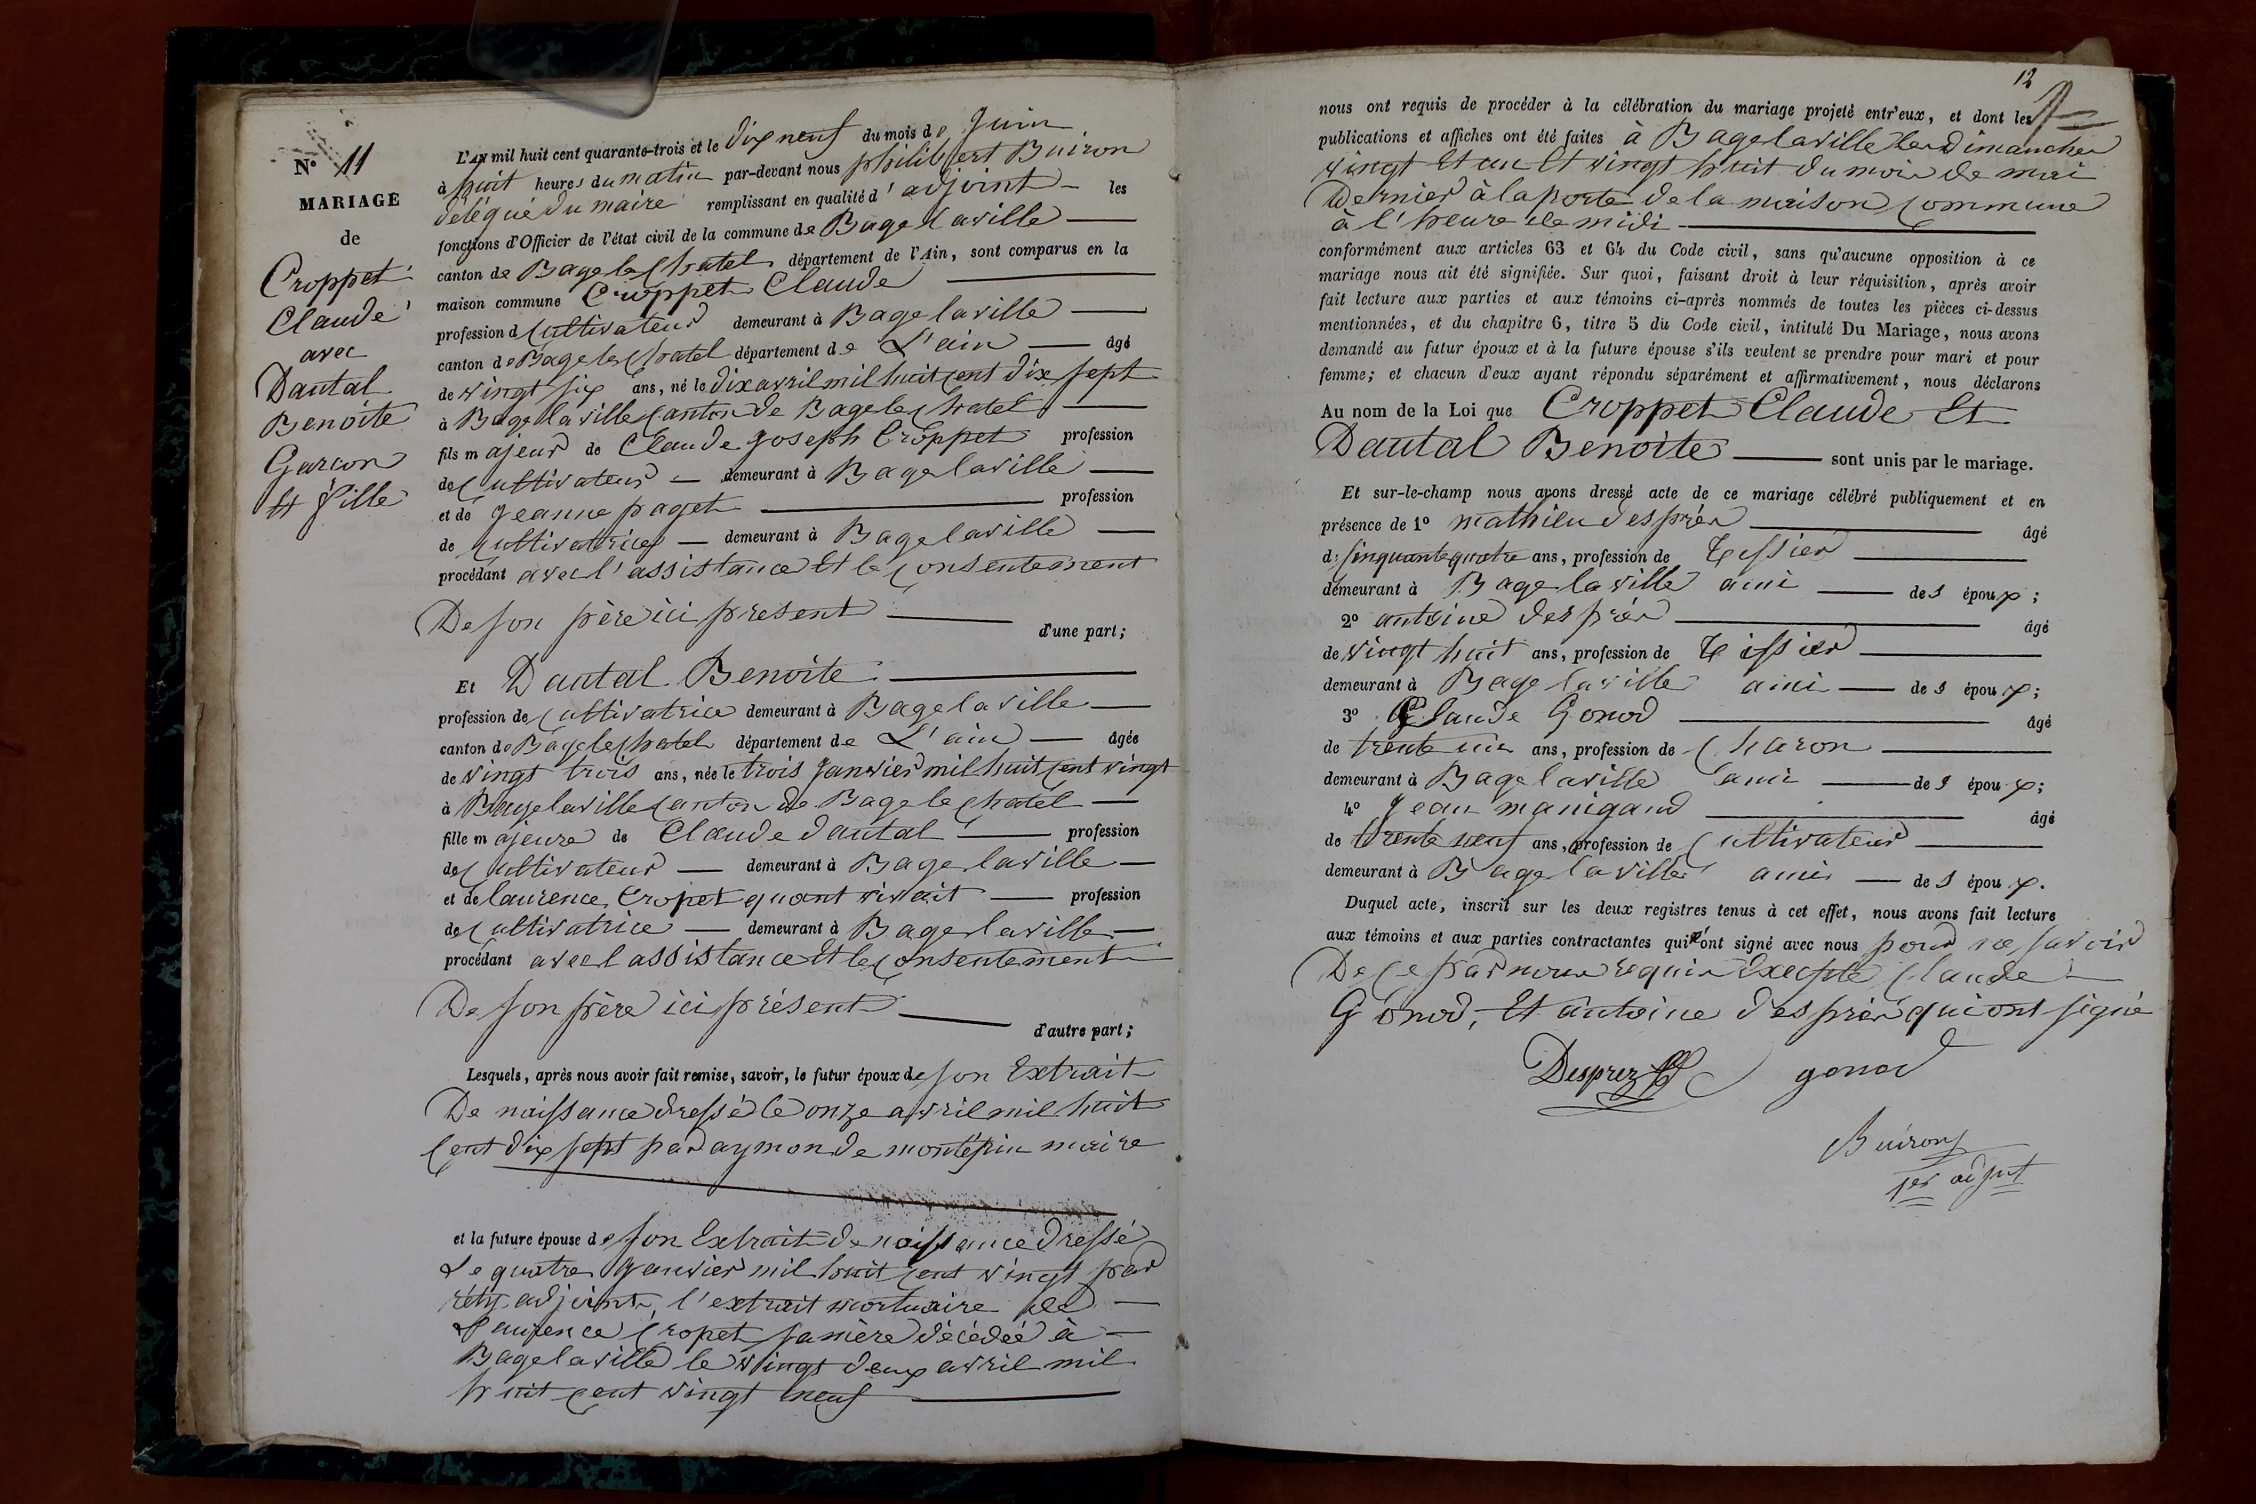 N° 11
MARIAGE
de
Croppet
Claude
avec
Dantal
Benoite
Garcon
et fille
L'AN mil huit cent quarante-trois et le dix neuf du mois de Juin
à huit heures du matin par-devant nous philibert Buiron
délégué du maire remplissant en qualité d'adjoint les
fonctions d'Officier de l'état civil de la commune de Bagelaville
canton de Bagelechatel département de l'Ain, sont comparus en la
maison commune Croppet Claude
profession d cultivateur demeurant à Bagelaville
canton de Bagelechatel département de L'ain âgé
de vingt six ans, né le dix avril mil huit cent dix sept
à Bagelaville canton de Bagelechatel
fils majeur de Claude Joseph Croppet profession
de cultivateur demeurant à Bagelaville
et de Jeanne paget profession
de cultivatrice demeurant à Bagelaville
procédant avec l'assistance Et le consentement
De son père ici present
d'une part;
Et Dantal Benoite
profession de cultivatrice demeurant à Bagelaville
canton de Bagelechatel département de L'ain âgée
de vingt trois ans, née le trois Janvier mil huit cent vingt
à Bagelaville canton de Bagelechatel
fille majeure de Claude dantal profession
de cultivateur demeurant à Bagelaville
et de laurence Cropet quant vivait profession
de cultivatrice demeurant à Bagelaville
procédant avec l assistance Et le consentement
De son père ici présent
d'autre part;
Lesquels, après nous avoir fait remise, savoir, le futur époux de son Extrait
De naissance dressé le onze avril mil huit
cent dix sept par aymon de montépin maire
et la future épouse de son Extrait de naissance dressé
Le quatre Janvier mil huit cent vingt par
adjoint, l'extrait mortuaire de
Laurence Cropet sa mère décédée à
Bagelaville le vingt deux avril mil
huit cent vingt neuf
12
nous ont requis de procéder à la célébration du mariage projeté entr'eux, et dont les
publications et affiches ont été faites à Bagelaville les Dimanches
vingt Et un Et vingt huit du mois de mai
Dernier à la porte de la maison commune
à l'heure de midi
conformément aux articles 63 et 64 du Code civil, sans qu'aucune opposition à ce
mariage nous ait été signifiée. Sur quoi, faisant droit à leur réquisition, après avoir
fait lecture aux parties et aux témoins ci-après nommés de toutes les pièces ci-dessus
mentionnées, et du chapitre 6, titre 5 du Code civil, intitulé Du Mariage, nous avons
demandé au futur époux et à la future épouse s'ils veulent se prendre pour mari et pour
femme; et chacun d'eux ayant répondu séparément et affirmativement, nous déclarons
Au nom de la Loi que Croppet Claude Et
Dantal Benoite sont unis par le mariage.
Et sur-le-champ nous avons dressé acte de ce mariage célébré publiquement et en
présence de 1° mathieu després âgé
de sinquante quatre ans, profession de tissier
demeurant à Bagelaville ami des époux;
2° antoine després âgé
de vingt huit ans, profession de tissier
demeurant à Bagelaville ami des époux;
3° Claude Gonod âgé
de trente un ans, profession de charon
demeurant à Bagelaville ami des époux;
4° Jean manigand âgé
de trente neuf ans, profession de cultivateur
demeurant à Bagelaville ami des époux.
Duquel acte, inscrit sur les deux registres tenus à cet effet, nous avons fait lecture
aux témoins et aux parties contractantes qui n'ont signé avec nous pour ne savoir
De ce par nous requis Excepté Claude
Gonod, Et antoine després qui ont signé
Desprez gonod
Buiron
1er adjoint